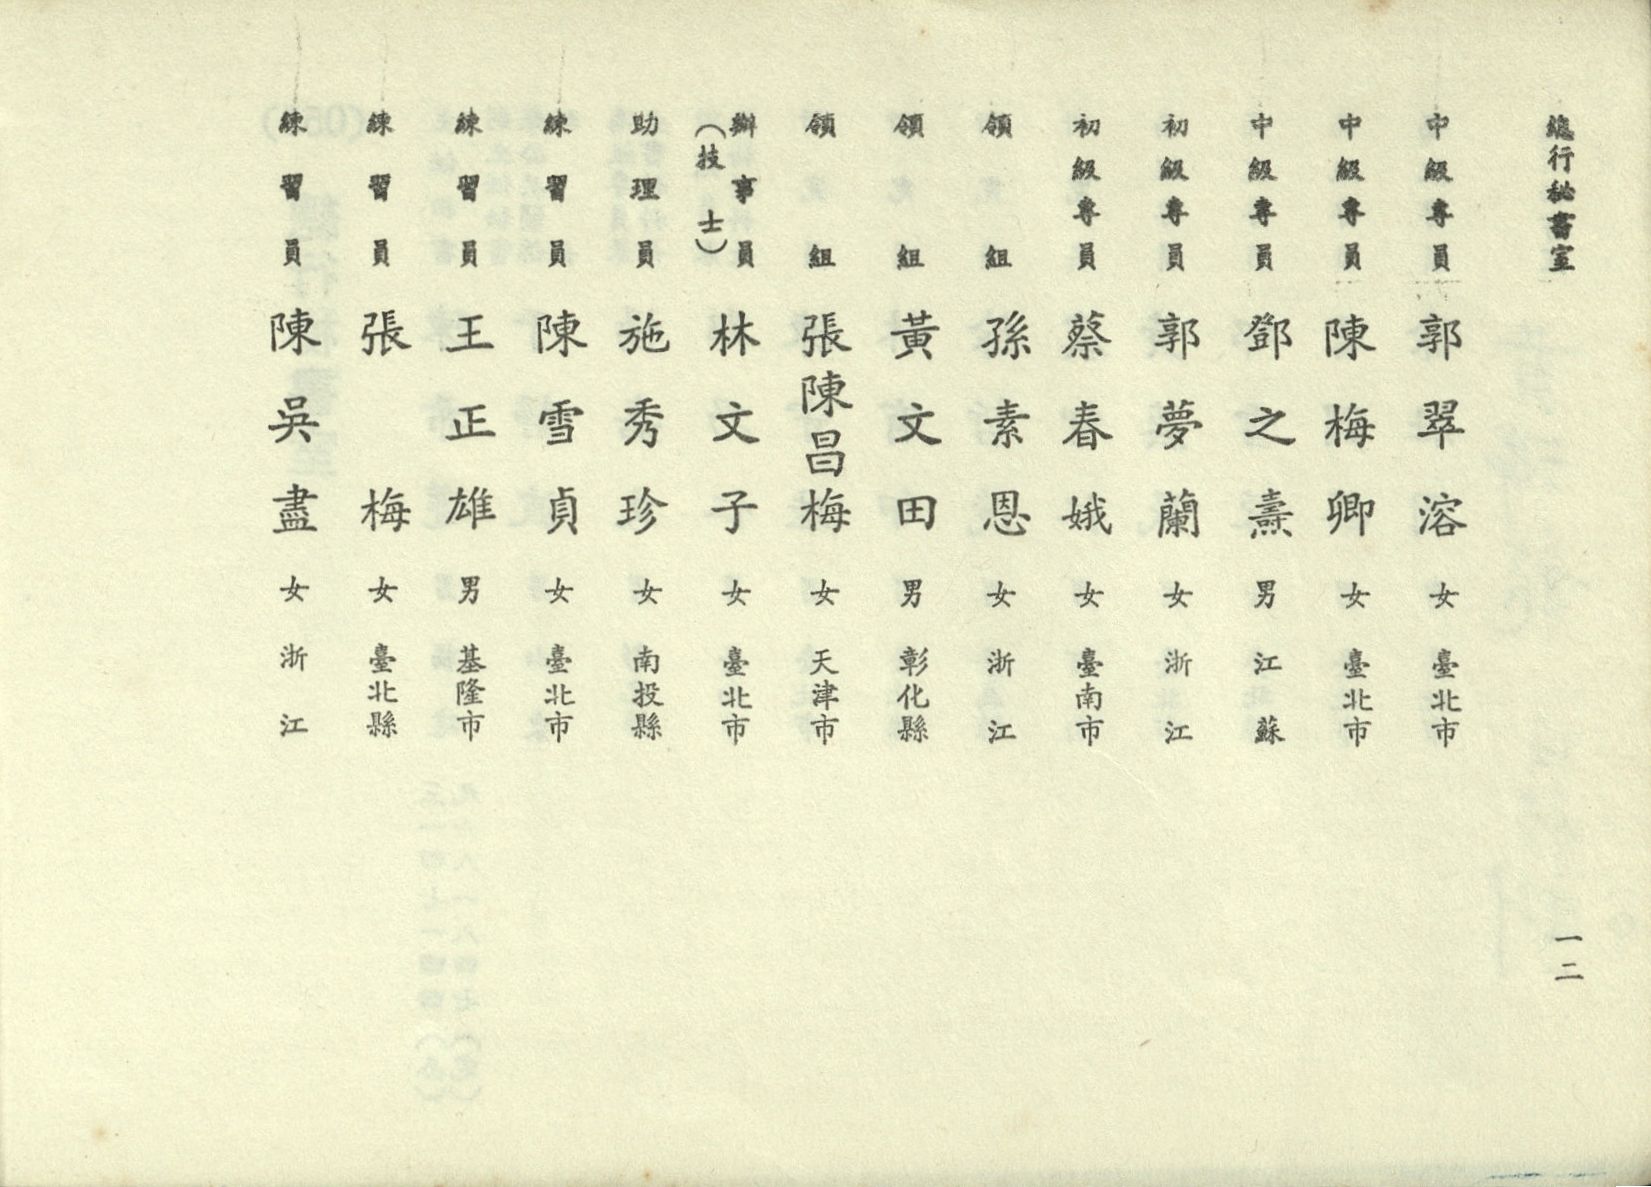 總行秘書室 一二
中級專員 郭翠溶 女 臺北市
中級專員 陳梅卿 女 臺北市
中級專員 鄧之燾 男 江蘇
初級專員 郭夢蘭 女 浙江
初級專員 蔡春娥 女 臺南市
領組 孫素恩 女 浙江
領組 黃文田 男 彰化縣
領組 張陳昌梅 女 天津市
辦事員（技士） 林文子 女 臺北市
助理員 施秀珍 女 南投縣
練習員 陳雪貞 女 臺北市
練習員 王正雄 男 基隆市
練習員 張梅 女 臺北縣
練習員 陳吳盡 女 浙江